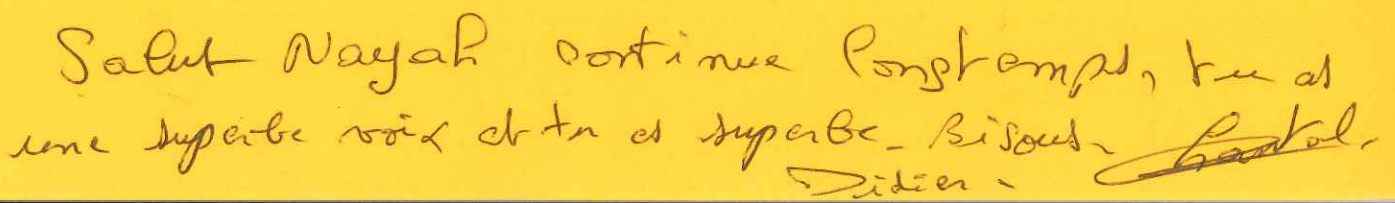 Salut Nayah continue longtemps, tu as
une superbe voix et tu es superbe. Bisous.
Didier. Chantal.